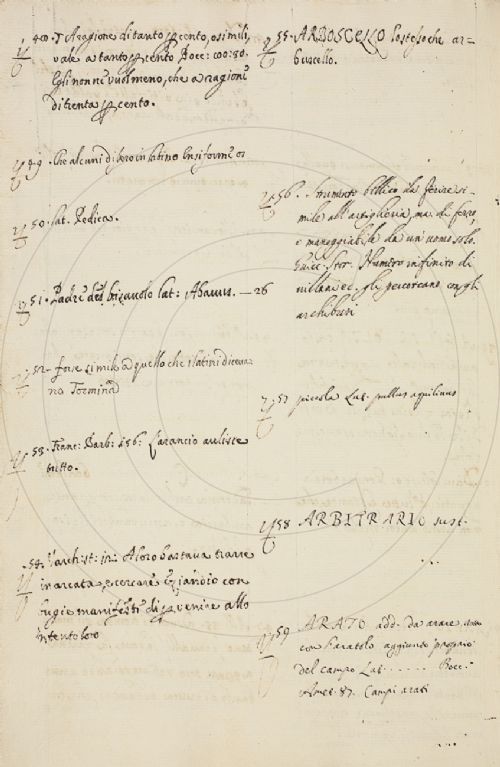 48. A ragione di tanto p cento, o simili,
vale a tanto p cento Bocc: 100: 80.
Egli non ne vuol meno, che a ragione
di trenta p cento.
49. Che alcuni di loro in latino
50. Lat. Pedica.
51. Padre del bisavolo lat: Abavus. — 26
52. forse simile a quello che i latini diceva
no Tormina
53. Franc: Barb: 256: L'arancio
tutto.
54. Varch: st: A loro bastava trarre
in arcata, e cercare
fugio manifesti di p venire allo
intento loro
55. ARBOSCELLO lo stesso che ar-
buscello.
56. Strumento bellico da ferire si-
mile all'artiglieria, ma di ferro,
e maneggiabile da un uomo solo.
Guicc. Stor. Numero infinito di
villani ec. gli percoteano con gli
archibusi
57 piccola Lat. pullus aquilinus
58 ARBITRARIO sust.
59 ARATO add. da arare, non
con l'aratolo aggiunto proprio
del campo Lat. . . . . . . Bocc.
Amet. 87. Campi arati